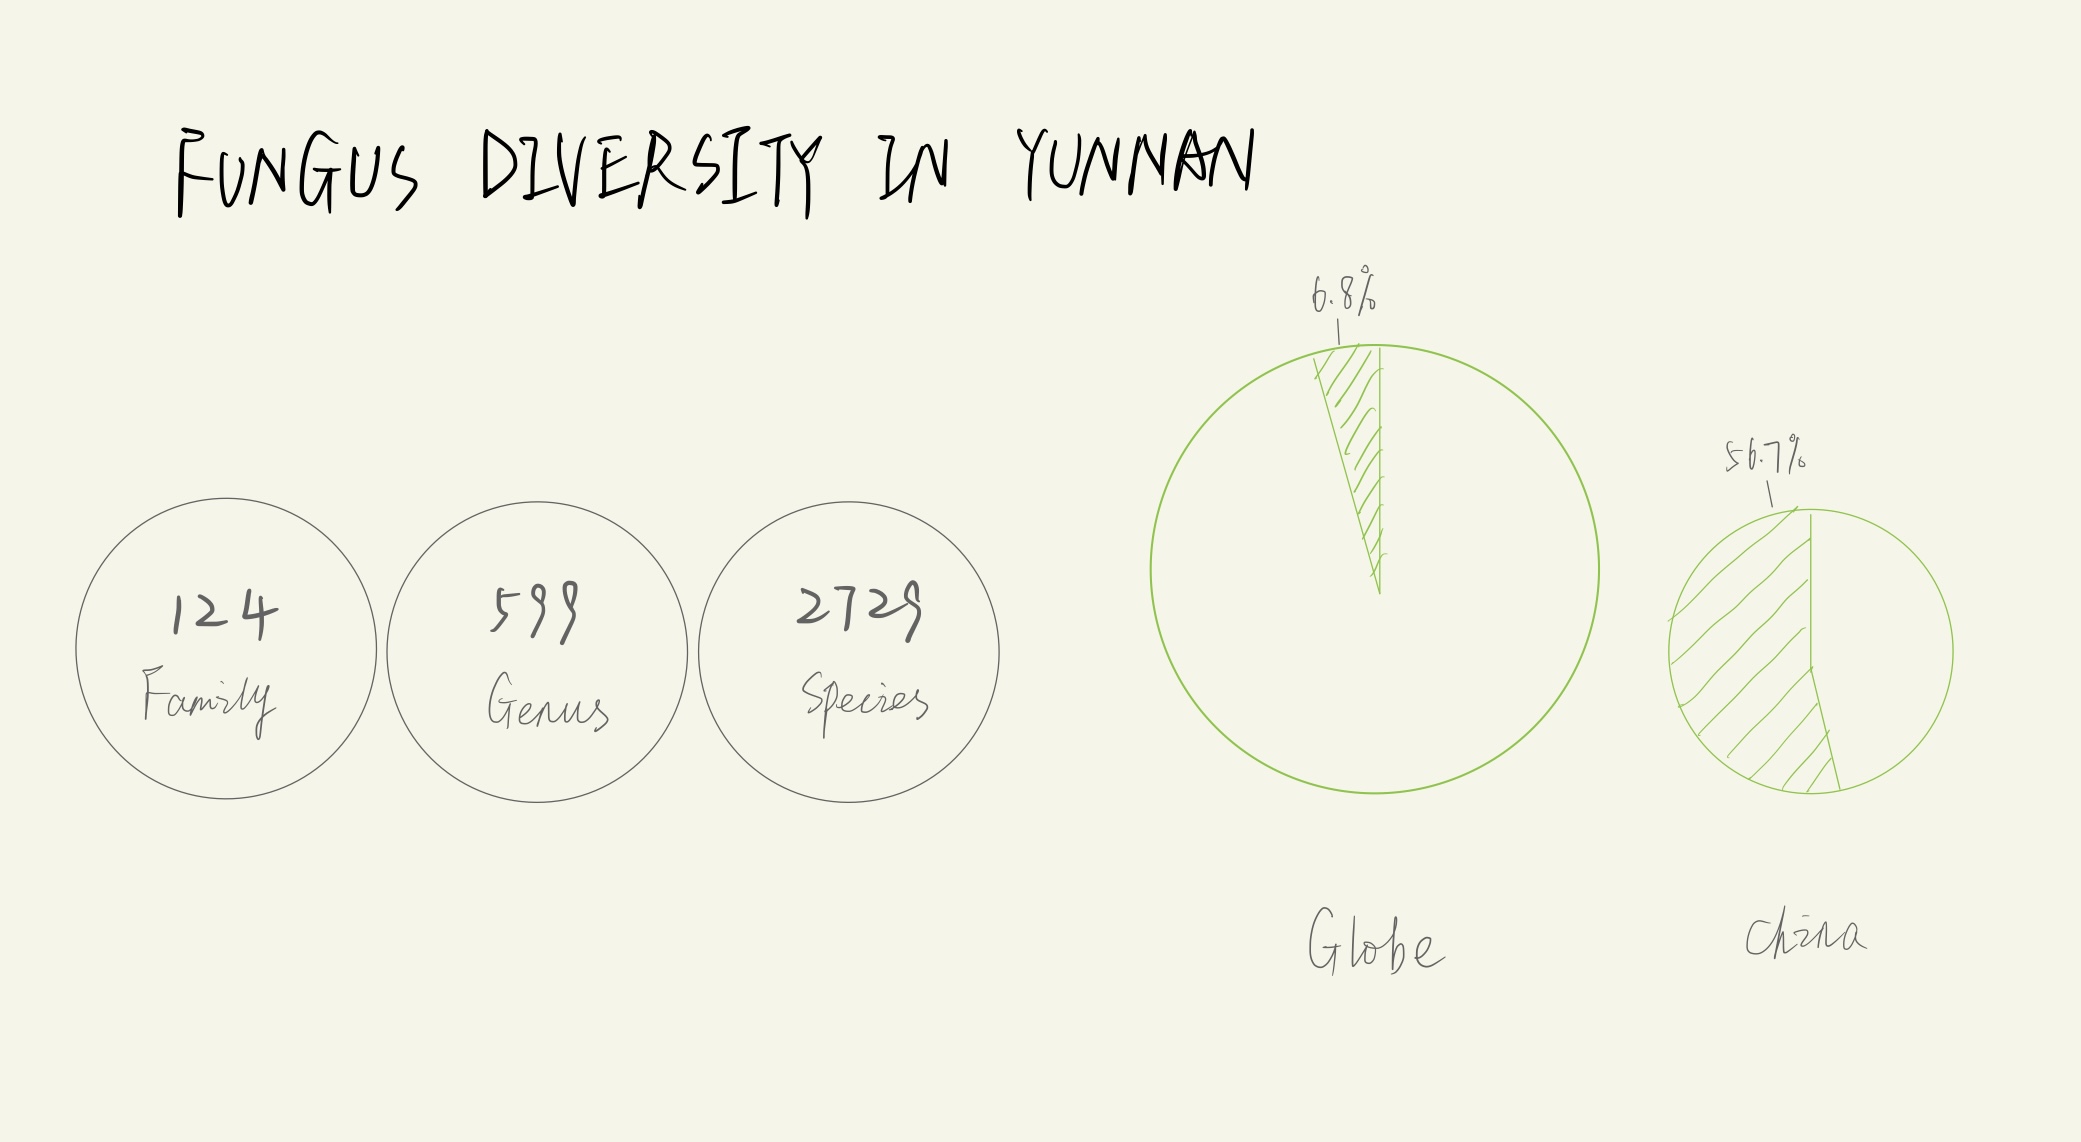 FUNGUS DIVERSITY IN YUNNAN
6.8%
56.7%
124
Family
599
Genus
2729
Species
Globe
China